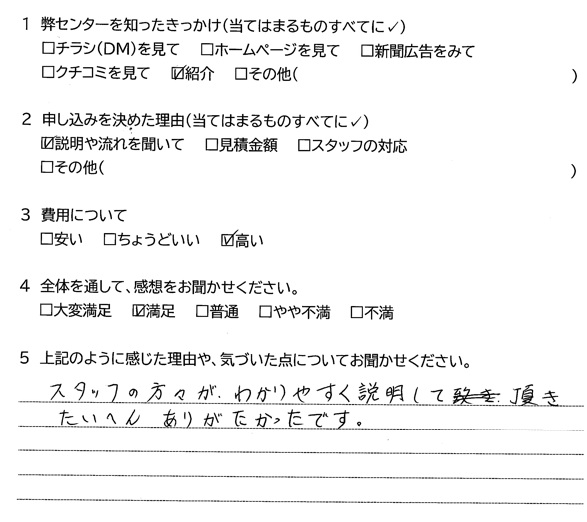 1 弊センターを知ったきっかけ(当てはまるものすべてに✓)
□チラシ(DM)を見て □ホームページを見て □新聞広告をみて
□クチコミを見て ☑紹介 □その他( )
2 申し込みを決めた理由(当てはまるものすべてに✓)
☑説明や流れを聞いて □見積金額 □スタッフの対応
□その他( )
3 費用について
□安い □ちょうどいい ☑高い
4 全体を通して、感想をお聞かせください。
□大変満足 ☑満足 □普通 □やや不満 □不満
5 上記のように感じた理由や、気づいた点についてお聞かせください。
スタッフの方々が、わかりやすく説明して 頂き
たいへん ありがたかったです。